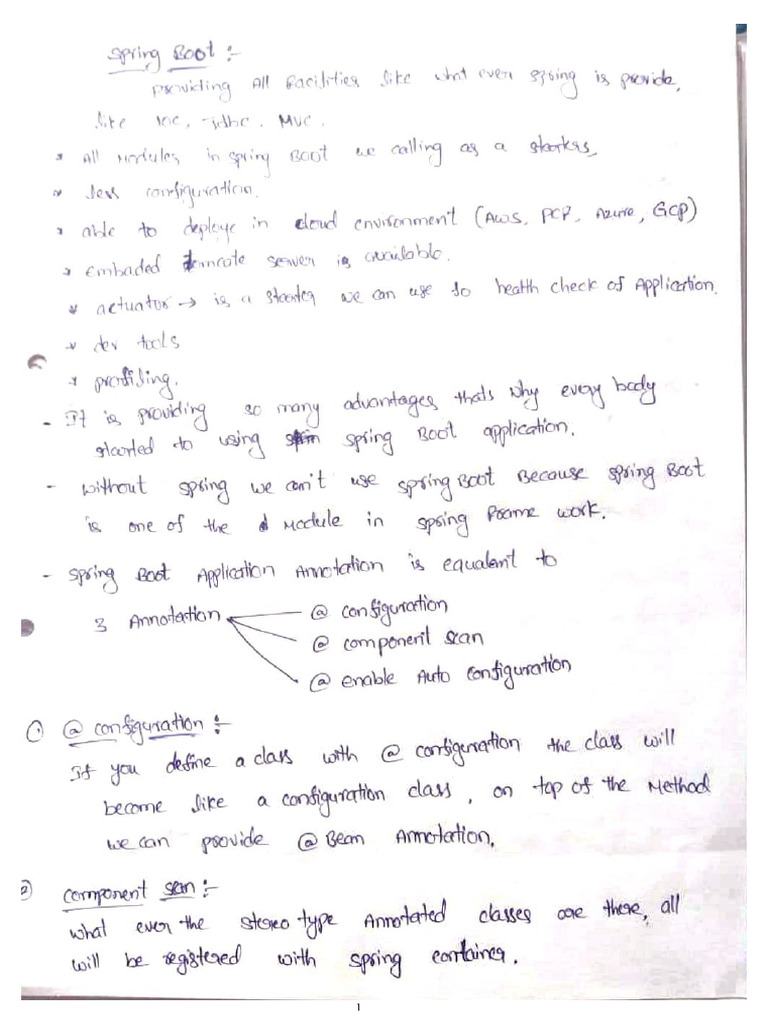 Spring Boot :-
Providing All Facilities like what ever spring is provide,
like IOC, Jdbc, MVC.
* All Modules in spring Boot we calling as a starters,
* less configuration.
* able to deploye in cloud environment (AWS, PCF, Azure, GCP)
* Embaded tomcate server is available.
* actuator → is a starter we can use to health check of Application.
* dev tools
* profiling.
- It is providing so many advantages thats why every body
started to using spring Boot application.
- without spring we can't use spring Boot Because spring Boot
is one of the Module in spring Frame work.
- Spring Boot Application Annotation is equalent to
3 Annotation
@ configuration
@ component scan
@ enable Auto configuration
① @ configuration :-
If you define a class with @ configeration the class will
become like a configuration class, on top of the Method
we can provide @ Bean Annotation.
② component scan :-
what ever the stereo type Annotated classes are there, all
will be registered with spring container.
1